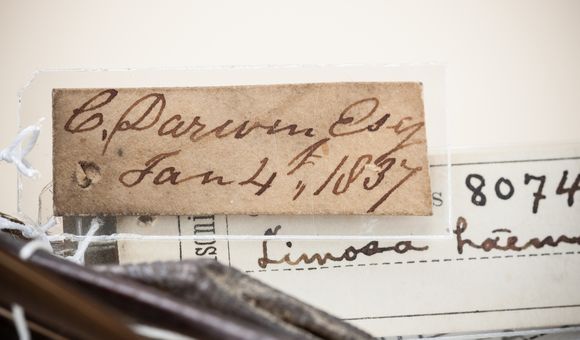 C. Darwin, Esq
Jan 4th, 1837
8074
Limosa haem